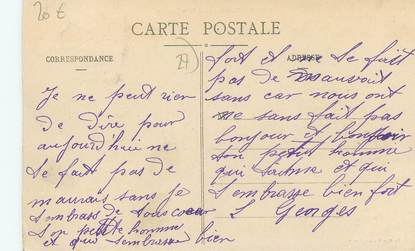 20 €
CARTE POSTALE
CORRESPONDANCE
ADRESSE
29
Je ne peut rien
de dire pour
aujourd'hui ne
se fait pas de
mauvais sans je
t'embrasse de tous coeur
Son petite homme
et qui t'embrasse bien
fort et ne se fait
pas de mauvait
sans car nous ont
me sans fait pas
bonjour et
son petit homme
qui t'aime et qui
t'embrasse bien fort
Georges